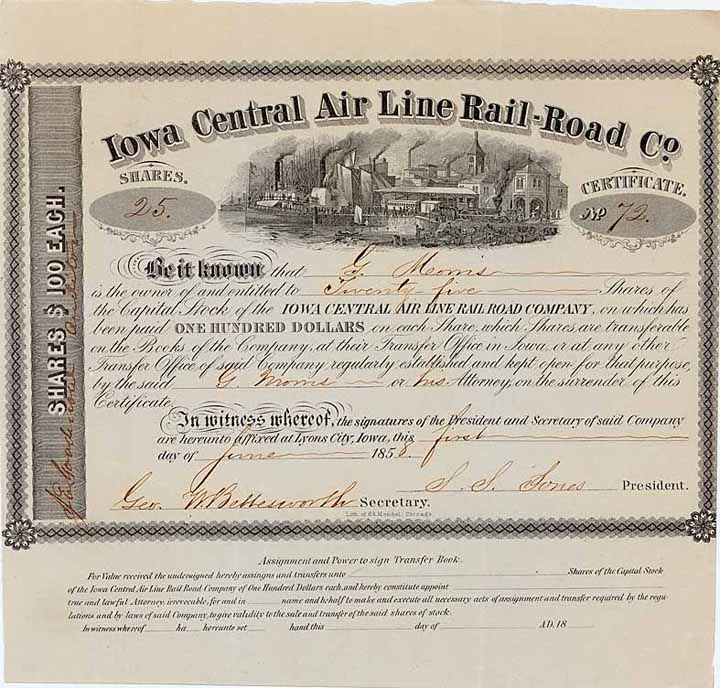 Iowa Central Air Line Rail-Road Co.
SHARES.
25.
CERTIFICATE.
No 72.
SHARES $ 100 EACH.
Be it known that G. Morris
is the owner of and entitled to Twenty five Shares of
the Capital Stock of the IOWA CENTRAL AIR LINE RAIL ROAD COMPANY, on which has
been paid ONE HUNDRED DOLLARS on each Share, which Shares are transferable
on the Books of the Company, at their Transfer Office in Iowa, or at any other
Transfer Office of said Company regularly established and kept open for that purpose,
by the said G. Morris or his Attorney, on the surrender of this
Certificate.
In witness whereof, the signatures of the President and Secretary of said Company
are hereunto affixed at Lyons City, Iowa, this first
day of June 1858.
Geo. W. Bettesworth Secretary.
S. S. Jones President.
Lith. of Ed. Mendel, Chicago.
Assignment and Power to sign Transfer Book.
For Value received the undersigned hereby assigns and transfers unto Shares of the Capital Stock
of the Iowa Central, Air Line Rail Road Company of One Hundred Dollars each, and hereby constitute appoint
true and lawful Attorney, irrevocable, for and in name and behalf to make and execute all necessary acts of assignment and transfer required by the regu-
lations and by laws of said Company, to give validity to the sale and transfer of the said shares of stock.
In witness whereof ha hereunto set hand this day of A.D. 18